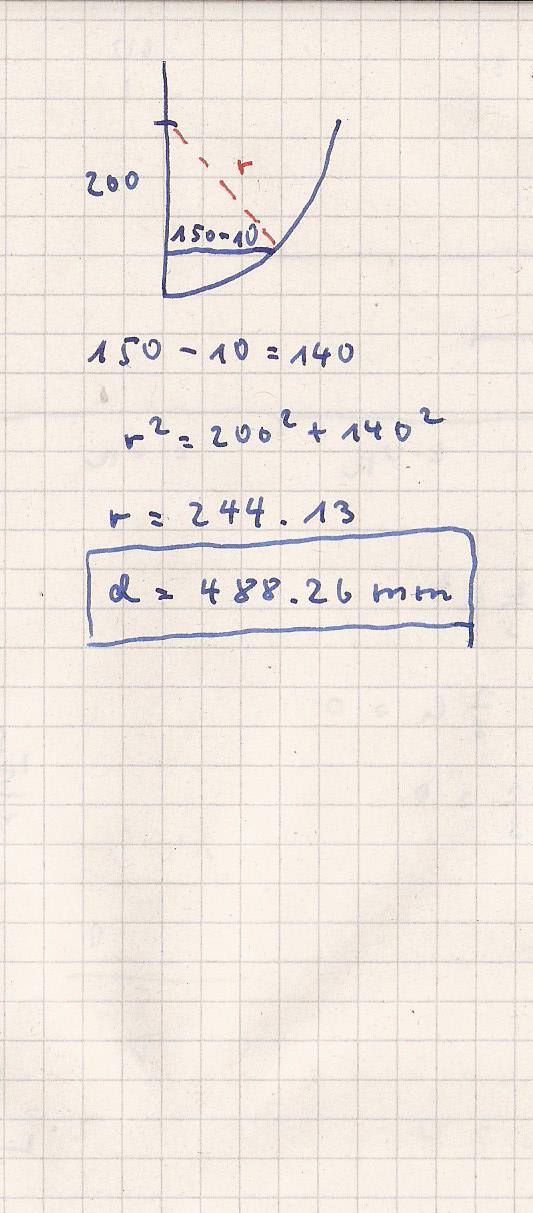 r
200
150-10
150 - 10 = 140
r² = 200² + 140²
r = 244.13
d = 488.26 mm